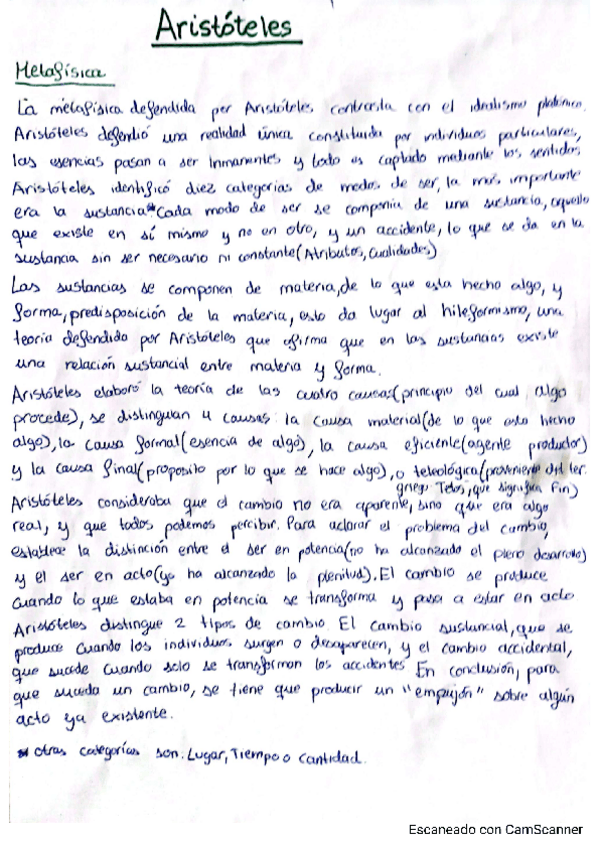 Aristóteles
Metafísica
La metafísica defendida por Aristóteles contrasta con el idealismo platónico.
Aristóteles defendió una realidad única constituida por individuos particulares,
las esencias pasan a ser inmanentes y todo es captado mediante los sentidos
Aristóteles identificó diez categorías de modos de ser, la más importante
era la sustancia* Cada modo de ser se componía de una sustancia, aquello
que existe en sí mismo y no en otro, y un accidente, lo que se da en la
sustancia sin ser necesario ni constante (Atributos, Cualidades)
Las sustancias se componen de materia, de lo que esta hecho algo, y
forma, predisposición de la materia, esto da lugar al hileformismo, una
teoría defendida por Aristóteles que afirma que en las sustancias existe
una relación sustancial entre materia y forma.
Aristóteles elaboró la teoría de las cuatro causas (principio del cual algo
procede), se distinguan 4 causas: la causa material (de lo que esta hecho
algo), la causa formal (esencia de algo), la causa eficiente (agente productor)
y la causa final (proposito por lo que se hace algo), o teleológica (proveniente del ter.
griego Telos, que significa Fin)
Aristóteles consideraba que el cambio no era aparente, sino que era algo
real, y que todos podemos percibir. Para aclarar el problema del cambio,
establece la distinción entre el ser en potencia (no ha alcanzado el pleno desarrollo)
y el ser en acto (ya ha alcanzado la plenitud). El cambio se produce
cuando lo que estaba en potencia se transforma y pasa a estar en acto
Aristóteles distingue 2 tipos de cambio. El cambio sustancial, que se
produce cuando los individuos surgen o desaparecen, y el cambio accidental,
que sucede cuando solo se transforman los accidentes En conclusión, para
que suceda un cambio, se tiene que producir un "empujón" sobre algún
acto ya existente.
* otras categorías son: Lugar, Tiempo o Cantidad.
Escaneado con CamScanner